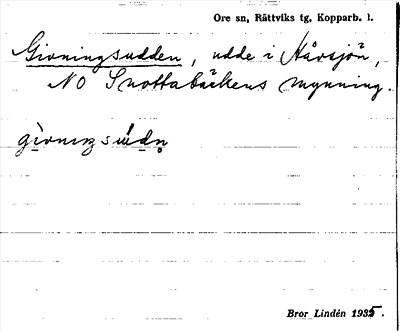 Ore sn, Rättviks tg, Kopparb. l.
Givningsudden, udde i Hårsjön,
NO Snottabäckens mynning.
gìvnɪŋsúdn̥
Bror Lindén 1935.